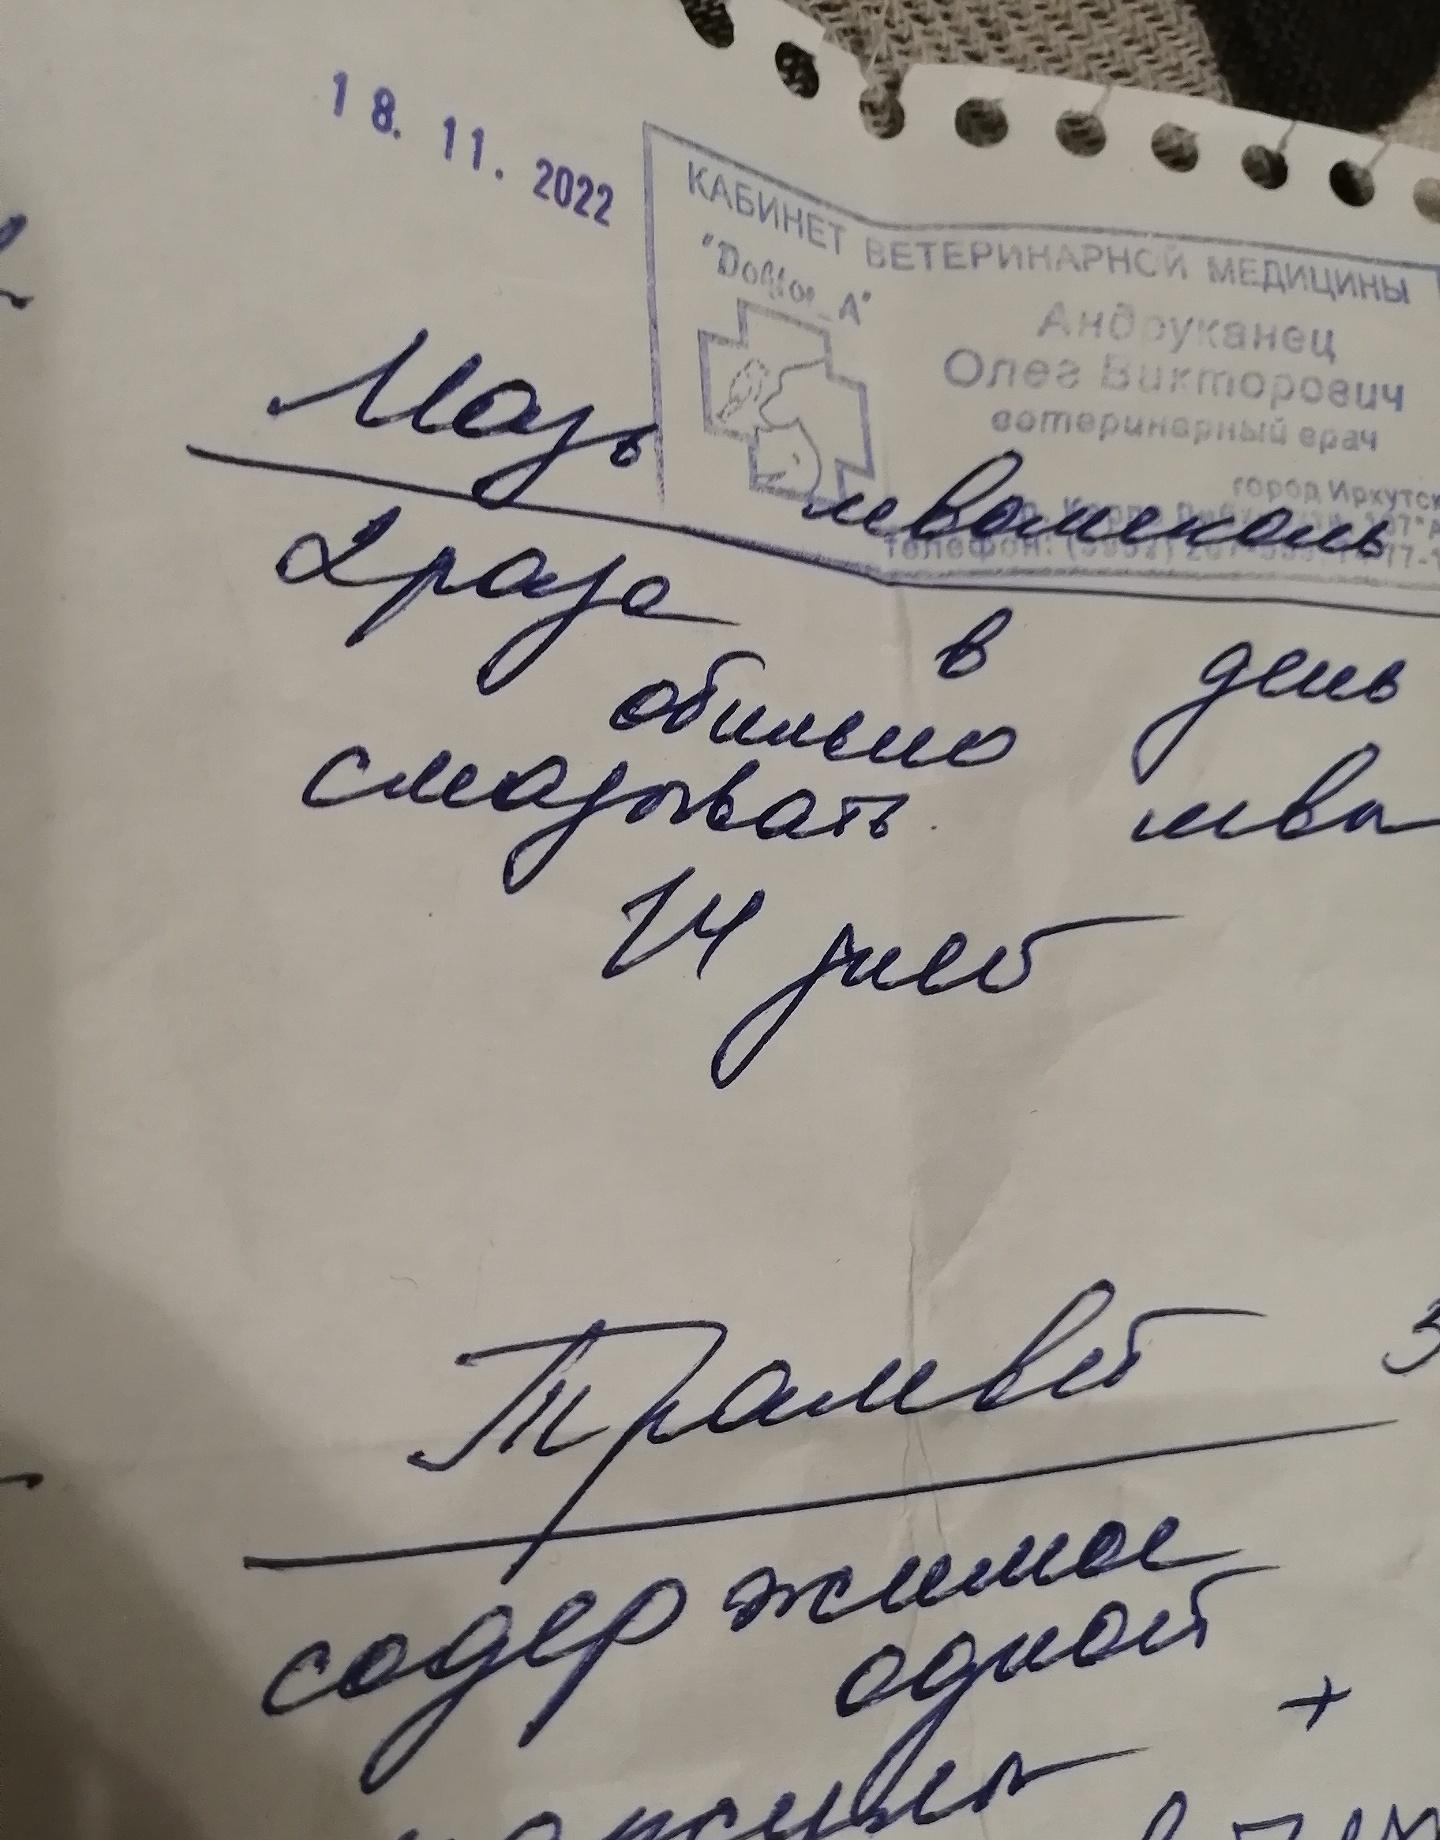 18.11.2022
КАБИНЕТ ВЕТЕРИНАРНОЙ МЕДИЦИНЫ
"Doktor_A"
Андруканец
Олег Викторович
ветеринарный врач
город Иркутск
телефон:
Мазь левомеколь
2 раза в день
обильно
смазывать швы
14 дней
Трамвет
содержимое
одной
+
капсулы